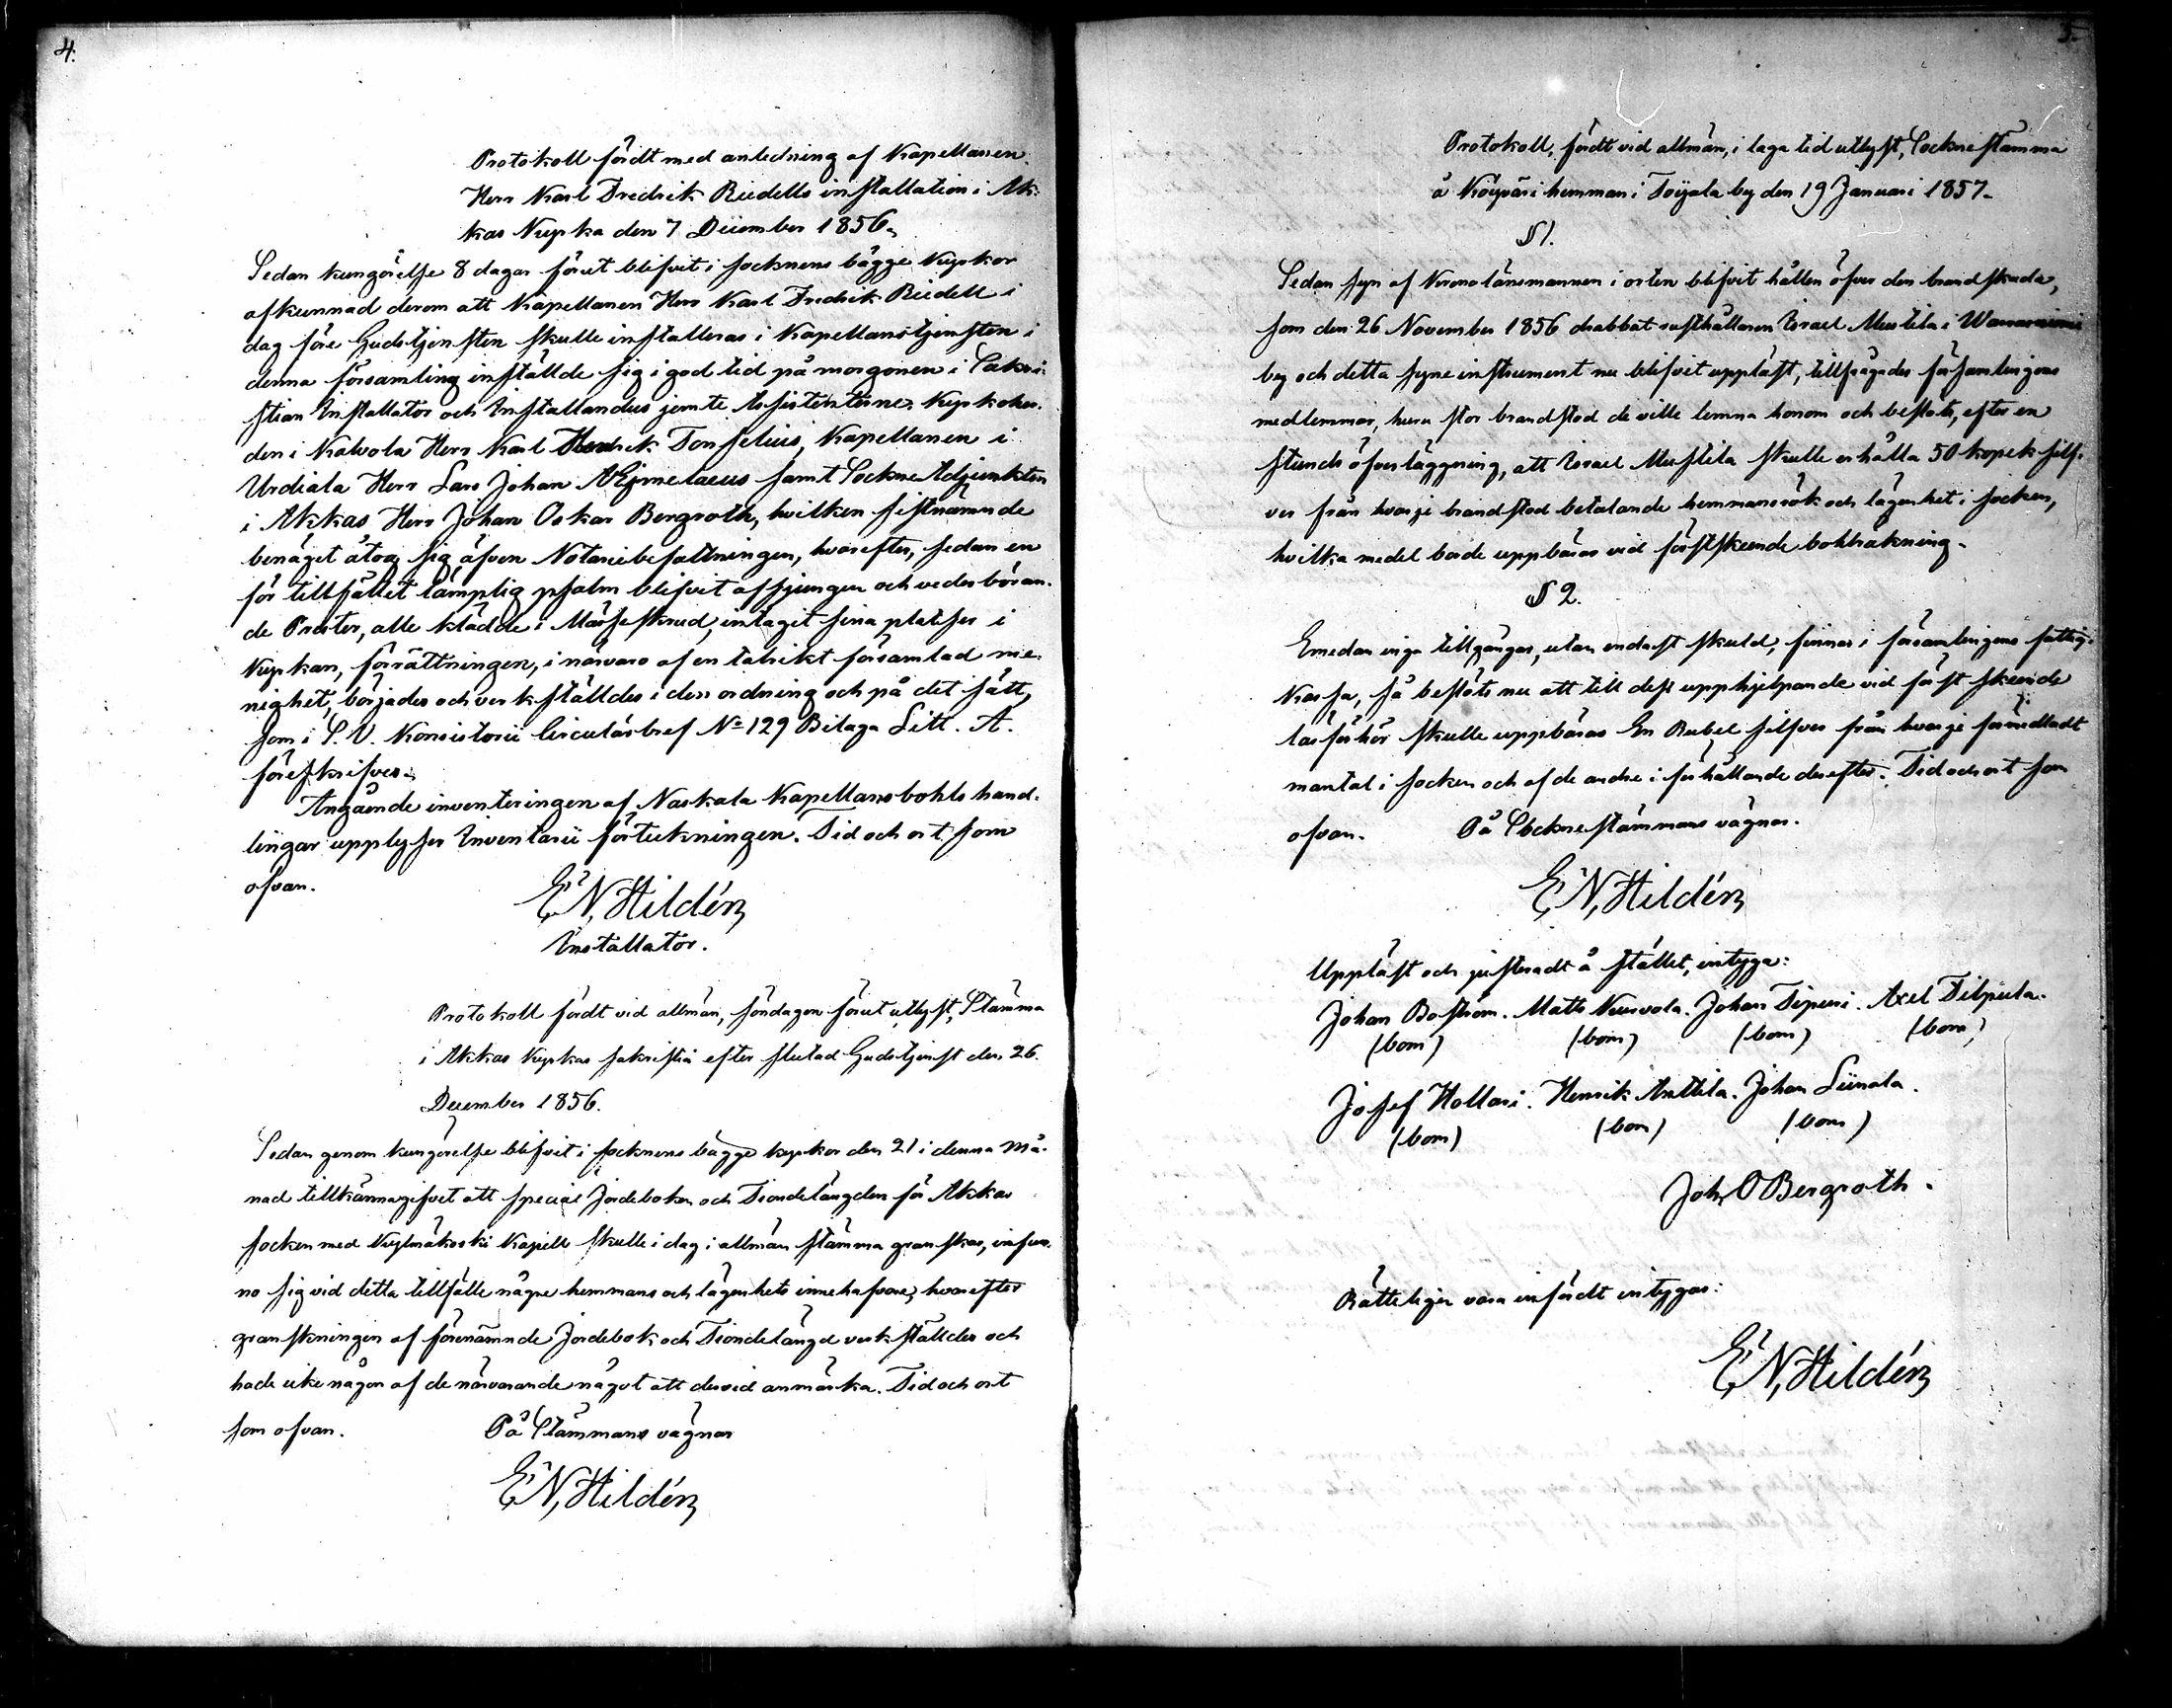 4.
Protokoll fördt med anledning af Kapellanen
Herr Karl Fredrik Riedells installation i Ak-
kas Kyrka den 7 December 1856.
Sedan kungörelse 8 dagar förut blifvit i socknens bägge Kyrkor
afkunnad derom att Kapellanen Herr Karl Fredrik Riedell i
dag före Gudstjensten skulle installeras i Kapellanstjensten i
denna församling inställde sig i god tid på morgonen i Sakri-
stian Installator och Installandus jemte Assistenterne, Kyrkoher-
den i Kalvola Herr Karl Henrik Tonselius, Kapellanen i
Urdiala Herr Lars Johan AEjmelaeus samt Sockne Adjunkten
i Akkas Herr Johan Oskar Bergroth, hvilken sistnämnde
benäget åtog sig äfven Notariebefattningen, hvarefter, sedan en
för tillfället lämplig psalm blifvit afsjungen och vederböran-
de Prester, alle klädde i Mässeskrud, intagit sina platser i
Kyrkan, förrättningen, i närvaro af en talrikt församlad me-
nighet, börjades och verkställdes i den ordning och på det sätt,
som i S. V. Konsistorii Circulärbref No 129 Bilaga Litt. A.
föreskrifves.
Angående inventeringen af Naskala Kapellansbohls hand-
lingar upplyser Inventarii förteckningen. Tid och ort som
ofvan.
E N Hildén
Installator.
Protokoll fördt vid allmän, söndagen förut utlyst, Stämma
i Akkas Kyrkas sakristia efter slutad Gudstjenst den 26.
December 1856.
Sedan genom kungörelse blifvit i socknens bägge kyrkor den 21 i denna må-
nad tillkännagifvet att special Jordeboken och Tiondelängden för Akkas
socken med Kylmäkoski Kapell skulle i dag i allmän stämma granskas, infun-
no sig vid detta tillfälle någre hemmans och lägenhets innehafvare, hvarefter
granskningen af förenämnde Jordebok och Tiondelängd verkställdes och
hade icke någon af de närvarande något att dervid anmärka. Tid och ort
som ofvan. På Stämmans vägnar
E N Hildén
5.
Protokoll, fördt vid allmän, i laga tid utlyst, Socknestämma
å Köyväri hemman i Toijala by den 19 Januari 1857.
§ 1.
Sedan syn af Kronolänsmannen i orten blifvit hållen öfver den brandskada,
som den 26 November 1856 drabbat rusthållaren Israel Mustila i
by och detta syneinstrument nu blifvit uppläst, tillfrågades församlingens
medlemmar, huru stor brandstod de ville lemna honom och beslöts, efter en
stunds öfverläggning, att Israel Mustila skulle erhålla 50 kopek silf-
ver från hvarje brandstod betalande hemmansrök och lägenhet i socken,
hvilka medel borde uppbäras vid förstskeende bohlräkning.
§ 2.
Emedan inga tillgångar, utan endast skuld, finnas i församlingens fattig-
kassa, så beslöts nu att till dess upphjelpande vid först skeende
läsförhör skulle uppbäras En Rubel silfver från hvarje förmedladt
mantal i socken och af de andre i förhållande derefter. Tid och ort som
ofvan. På Sockne stämmans vägnar.
E N Hildén
Uppläst och justeradt å stället, intyga:
Johan Boström. Matts Kurvola. Johan Sipuri. Axel Tilpula.
(bom) (bom) (bom) (bom)
Josef Hollari. Henrik Anttila. Johan Liinala.
(bom) (bom) (bom)
Joh O Bergroth.
Rätteligen vara infördt intygar:
E N Hildén